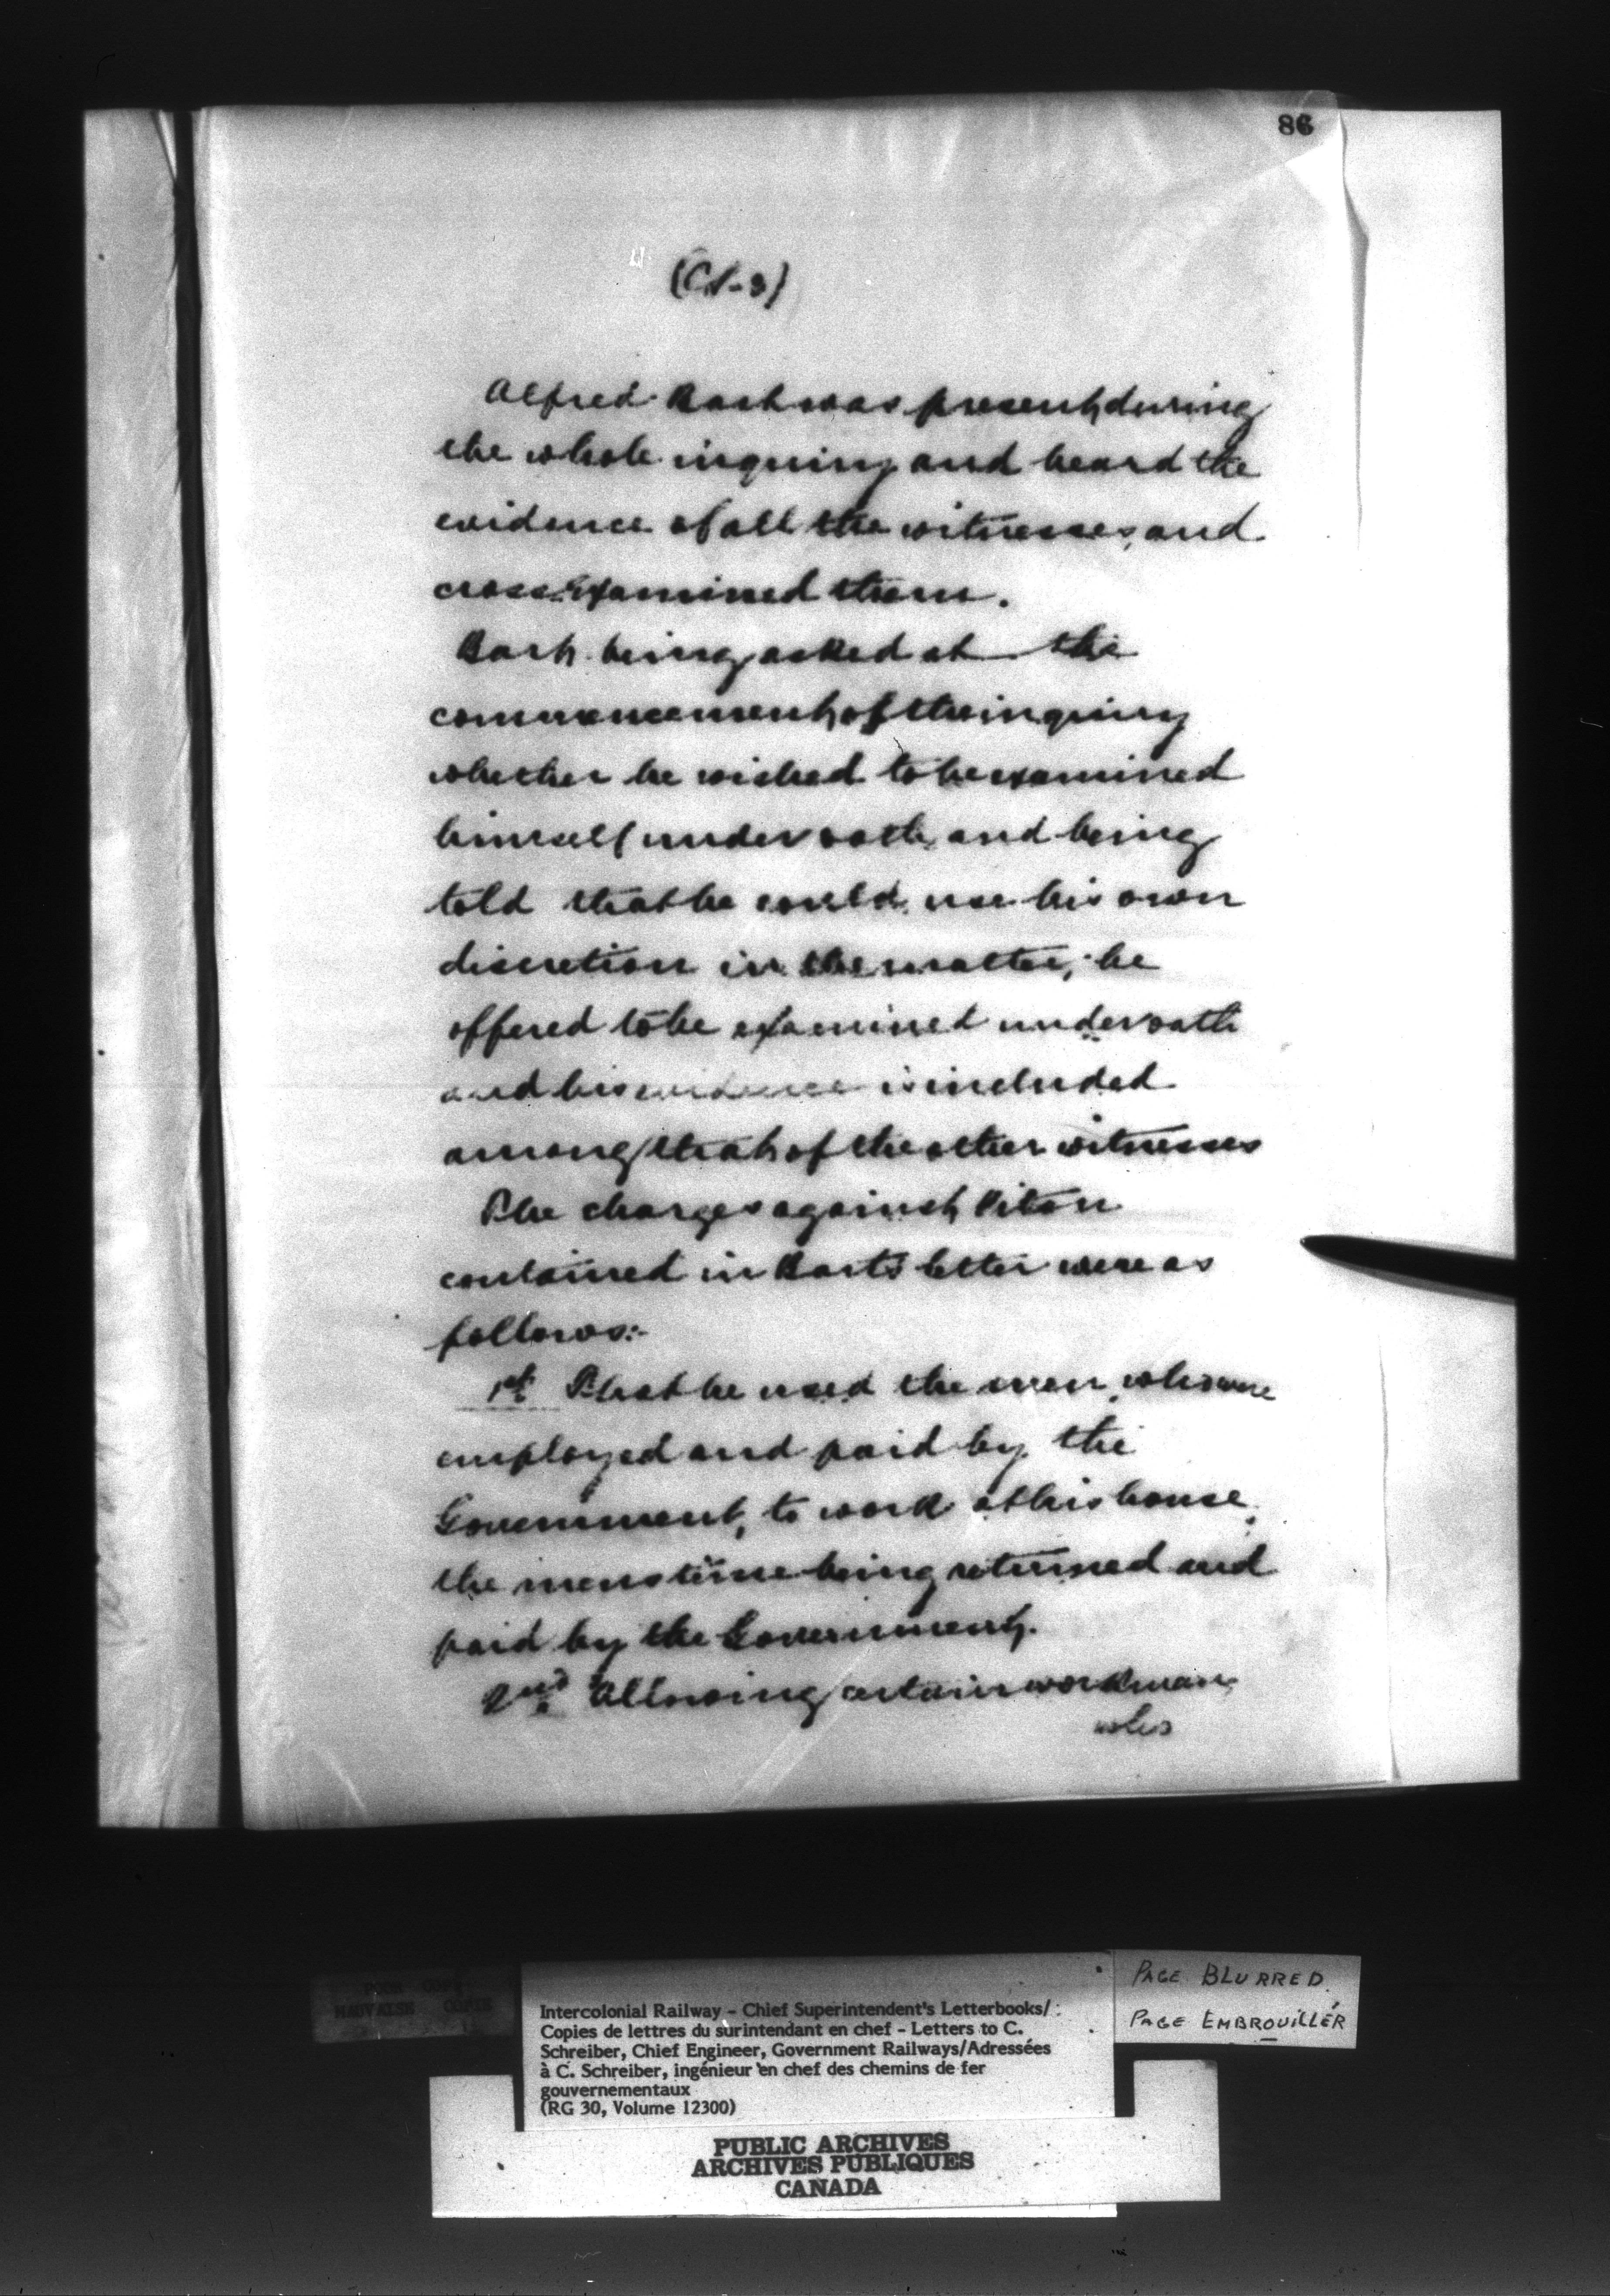 86
Alfred was present, during
the whole inquiry and heard the
evidence of all the witnesses, and
cross-examined them.
being asked at the
commencement of the inquiry
whether he wished to be examined
himself under oath, and being
told that he could use his own
discretion in the matter, he
offered to be examined under oath
and his evidence is included
among that of the other witnesses
The charges against
contained in letter were as
follows:-
1st That he used the men, who were
employed and paid by the
Government, to work at his house,
the mens time being returned and
paid by the Government.
2nd Allowing certain workman
who
POOR COPY
MAUVAISE COPIE
Intercolonial Railway - Chief Superintendent's Letterbooks/
Copies de lettres du surintendant en chef - Letters to C.
Schreiber, Chief Engineer, Government Railways/Adressées
à C. Schreiber, ingénieur en chef des chemins de fer
gouvernementaux
(RG 30, Volume 12300)
PAGE BLURRED
PAGE EMBROUILLÉR
PUBLIC ARCHIVES
ARCHIVES PUBLIQUES
CANADA